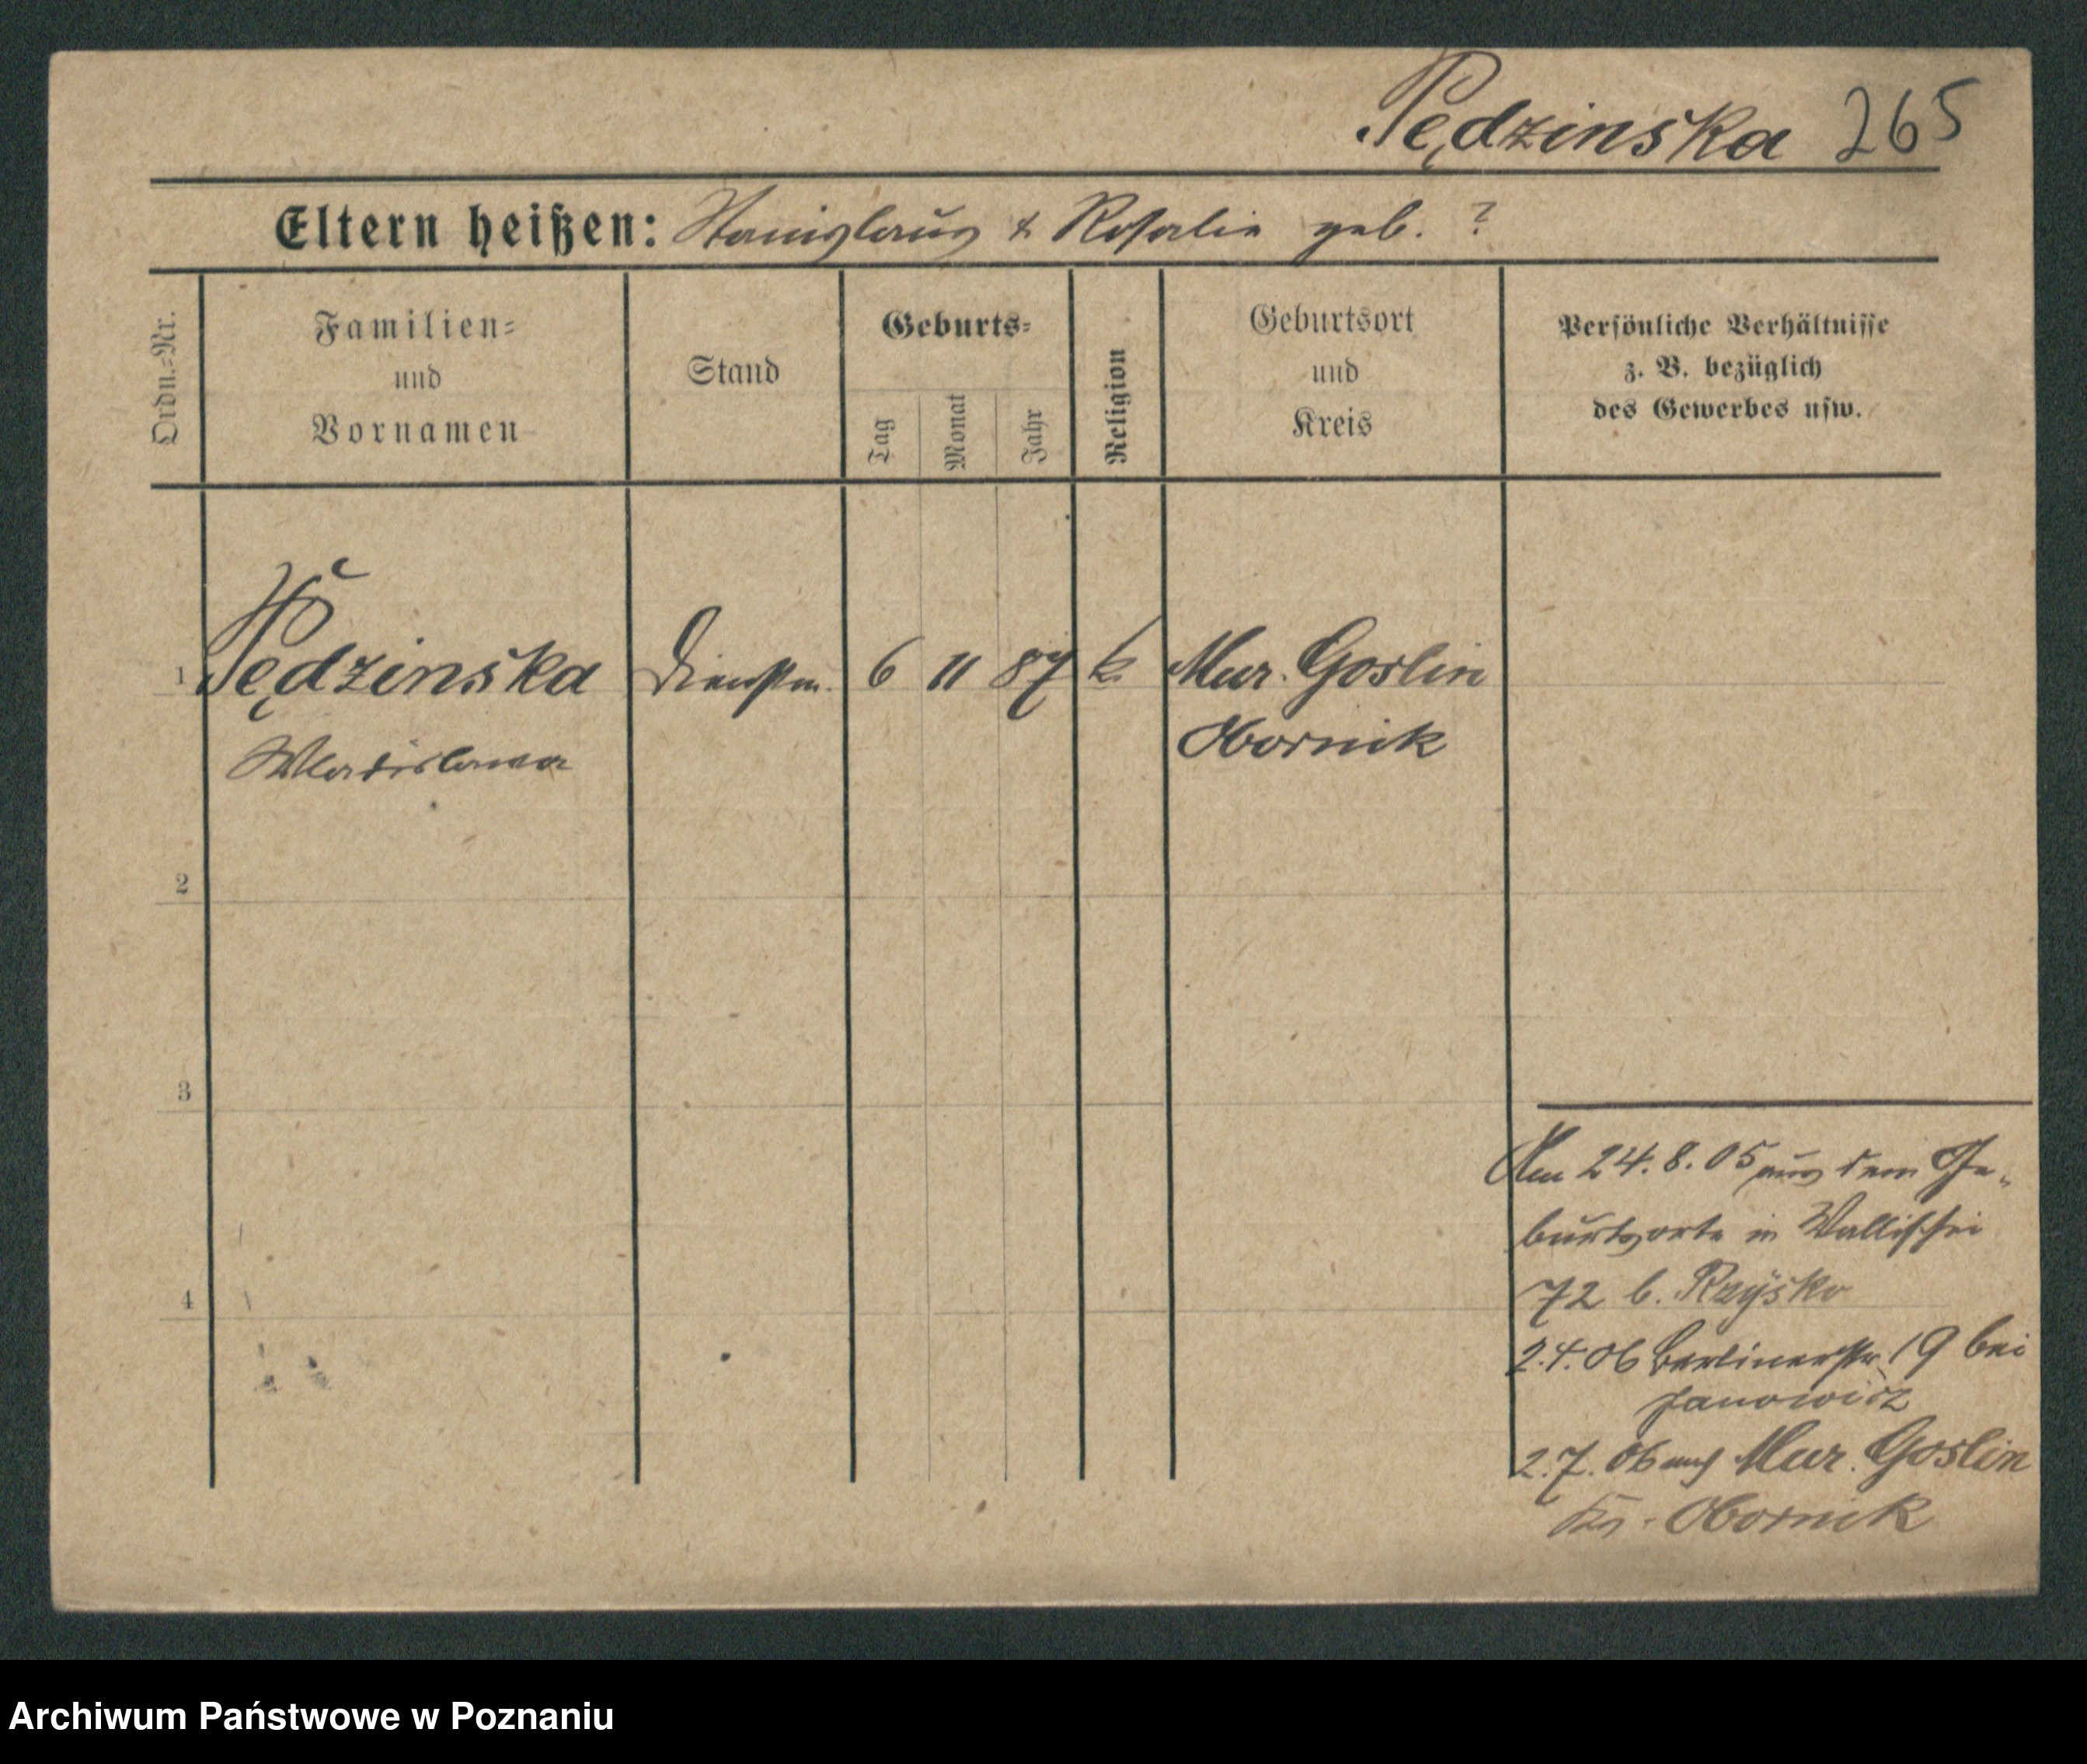 Pędzinska 265
Eltern heißen: Stanislaus & Rosalie geb. ?
Ordn.-Nr.
Familien-
und
Vornamen
Stand
Geburts-
Tag
Monat
Jahr
Religion
Geburtsort
und
Kreis
Persönliche Verhältnisse
z. B. bezüglich
des Gewerbes usw.
1 Pędzinska Dienstm. 6 11 87 k. Mur. Goslin
Wladislawa Obornik
2
3
Am 24.8.05 aus dem Ge-
burtsorte in Wallischei
4
72 b. Rzysko
2.4.06 Berlinerstr. 19 bei
Janowicz
2.7.06 nach Mur. Goslin
Krs. Obornik
Archiwum Państwowe w Poznaniu